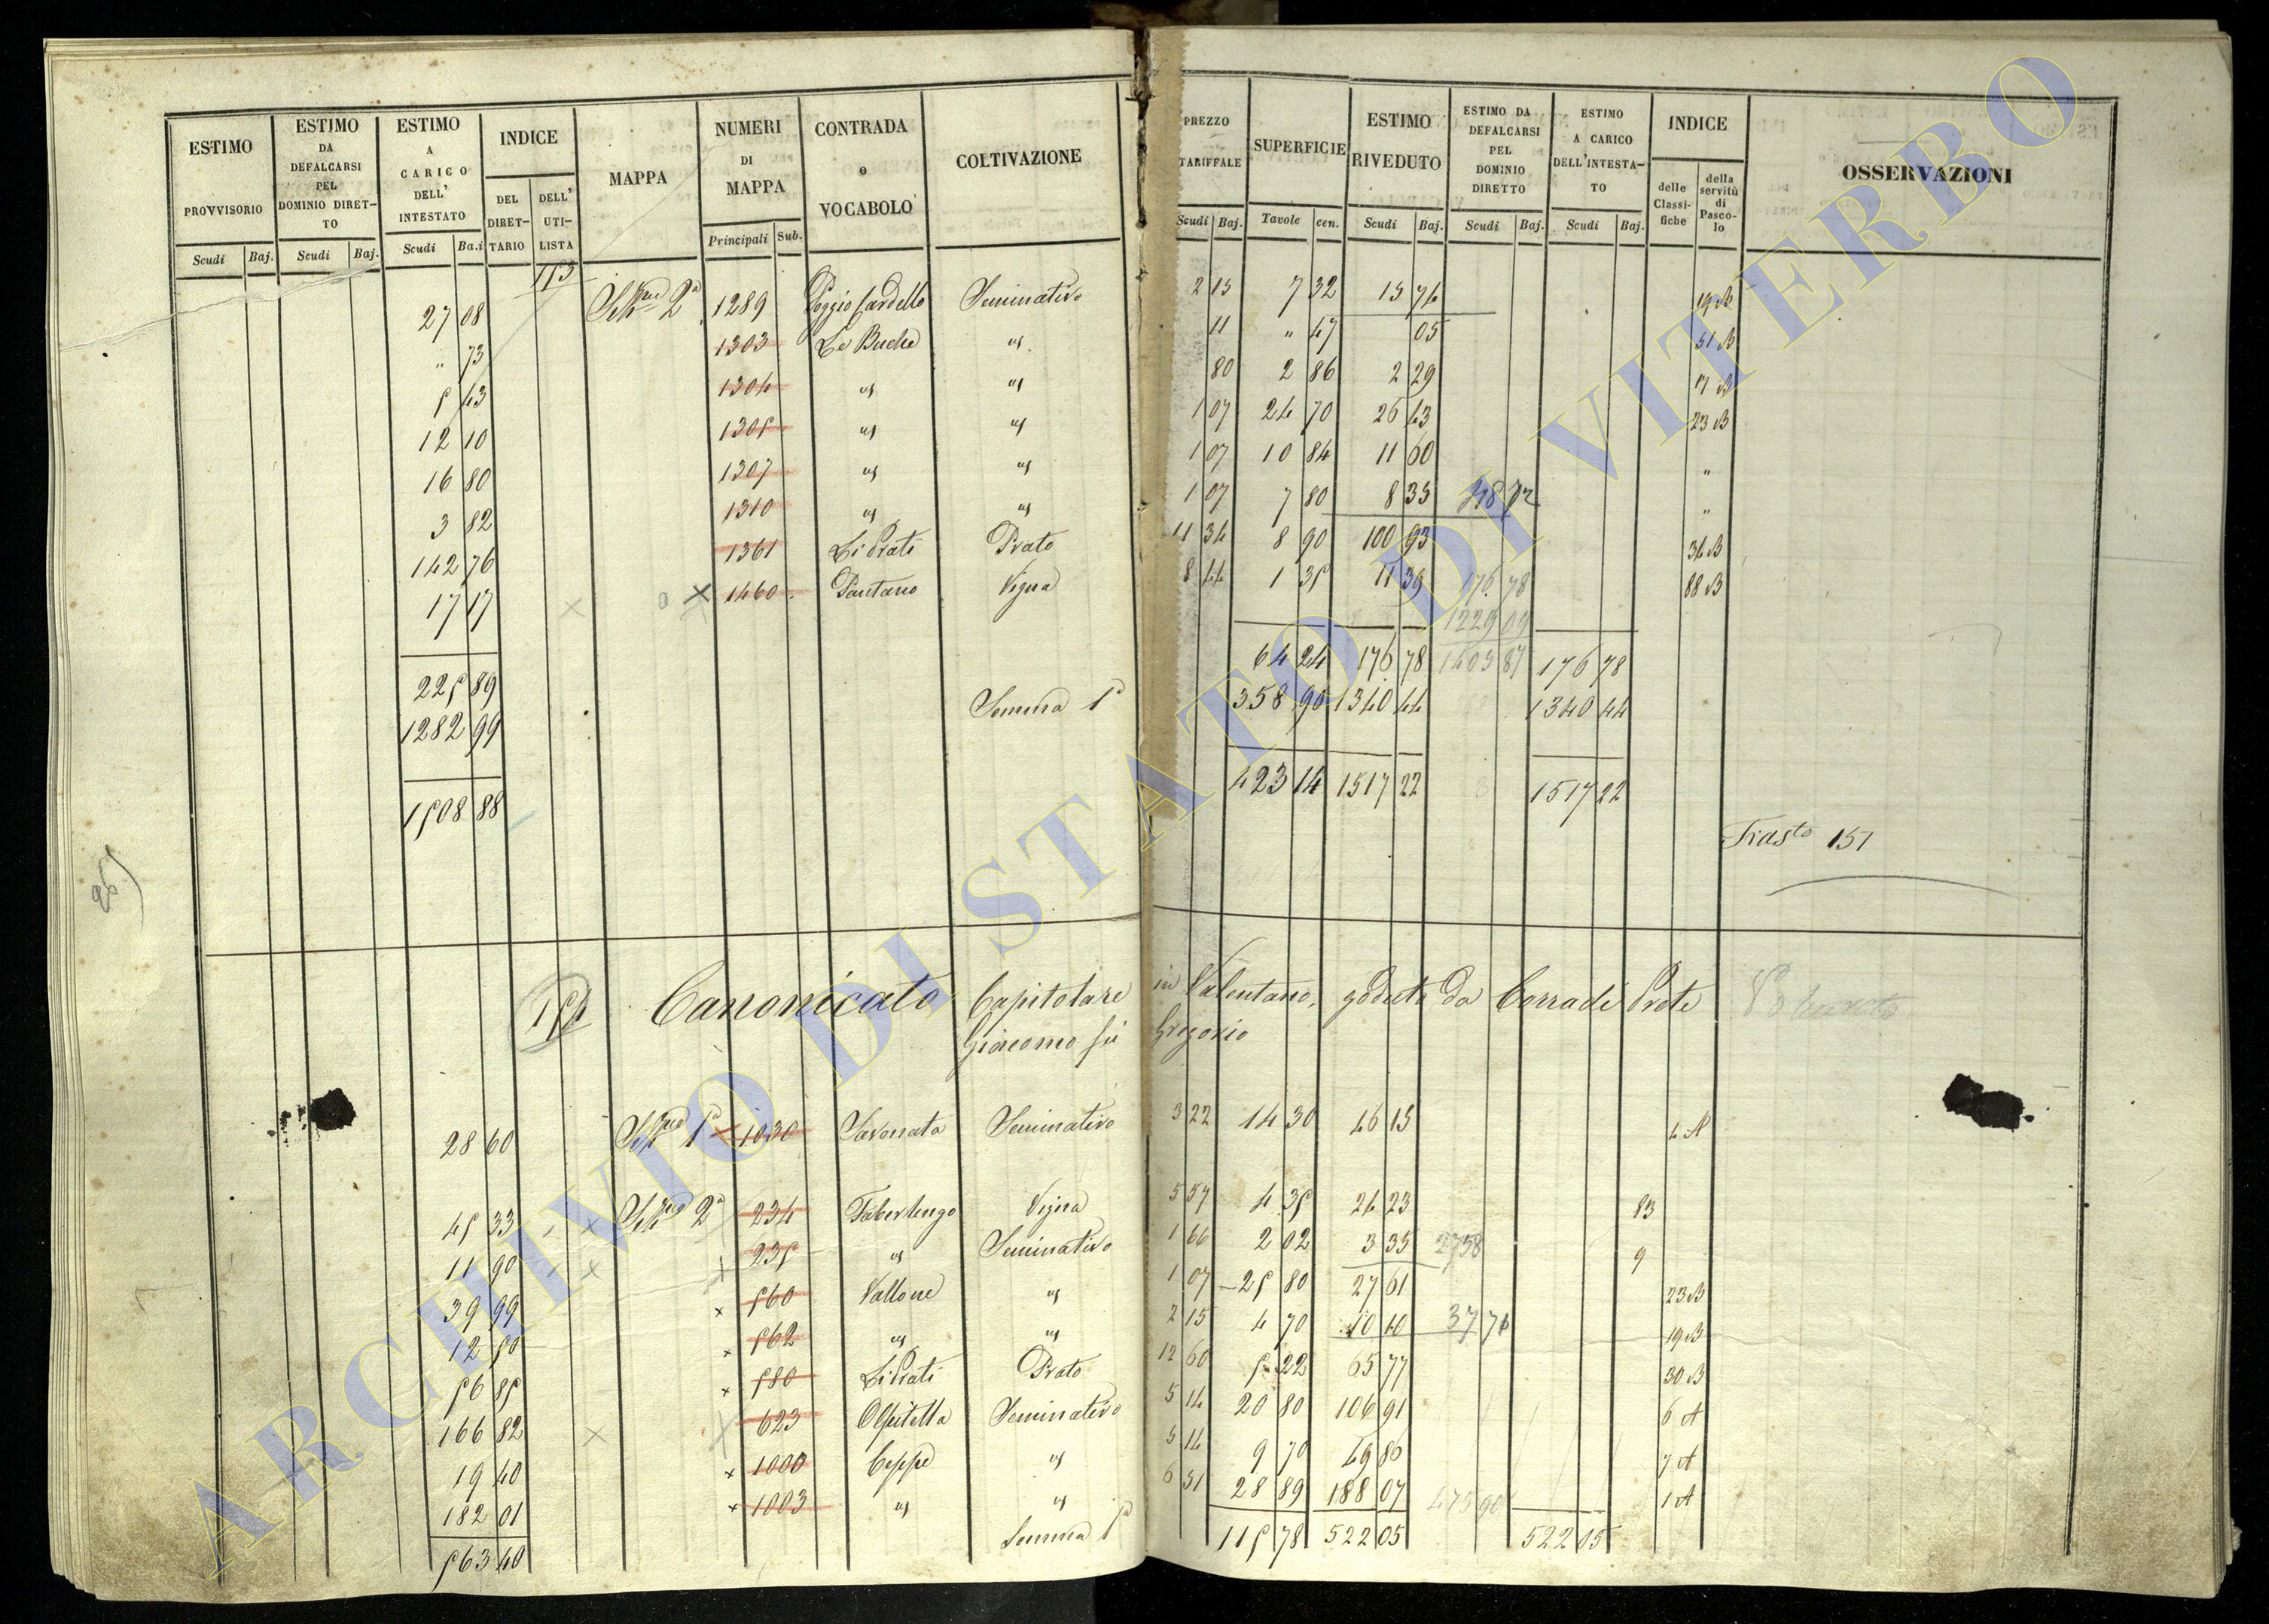 ESTIMO PROVVISORIO | ESTIMO DA DEFALCARSI PEL DOMINIO DIRET-TO | ESTIMO A CARICO DELL' INTESTATO | INDICE | MAPPA | NUMERI DI MAPPA | CONTRADA o VOCABOLO | COLTIVAZIONE | PREZZO TARIFFALE | SUPERFICIE | ESTIMO RIVEDUTO | ESTIMO DA DEFALCARSI PEL DOMINIO DIRETTO | ESTIMO A CARICO DELL'INTESTA-TO | INDICE | OSSERVAZIONI
Scudi | Baj. | Scudi | Baj. | Scudi | Ba.i | DEL DIRET-TARIO | DELL' UTI-LISTA | Principali | Sub. | Scudi | Baj. | Tavole | cen. | Scudi | Baj. | Scudi | Baj. | Scudi | Baj. | delle Classi-fiche | della servitù di Pasco-lo
153
27 08 | 2ª | 1289 | Poggio Cardello | Seminativo | 2 15 | 7 32 | 15 74 | 19 B
" 73 | 1303 | Le Buche | " | 11 | " 47 | 05 | 51 B
5 43 | 1304 | " | " | 80 | 2 86 | 2 29 | 17 B
12 10 | 1305 | " | " | 1 07 | 24 70 | 26 43 | 23 B
16 80 | 1307 | " | " | 1 07 | 10 84 | 11 60 | "
3 82 | 1310 | " | " | 1 07 | 7 80 | 8 35 | "
142 76 | 1361 | Li Prati | Prato | 11 34 | 8 90 | 100 93 | 34 B
17 17 | × 1460 | Pantano | Vigna | 8 44 | 1 35 | 11 39 | 176 78 | 88 B
1229 09
225 89 | 64 24 | 176 78 | 1405 87 | 176 78
1282 99 | Somma 1ª | 358 90 | 1340 44 | 1340 44
1508 88 | 423 14 | 1517 22 | 1517 22
Trasto 151
154 Canonicato Capitolare in Valentano, goduto da Corradi Prete
Giacomo fù Gregorio
28 60 | 1ª | 1030 | Savonata | Seminativo | 3 22 | 14 30 | 46 15 | 4 A
45 33 | 2ª | 234 | Faberlengo | Vigna | 5 57 | 4 35 | 24 23 | 83
11 90 | 235 | " | Seminativo | 1 66 | 2 02 | 3 35 | 27 58 | 9
39 99 | × 560 | Vallone | " | 1 07 | 25 80 | 27 61 | 23 B
12 50 | × 562 | " | " | 2 15 | 4 70 | 10 10 | 37 71 | 19 B
56 85 | × 580 | Li Prati | Prato | 12 60 | 5 22 | 65 77 | 30 B
166 82 | 623 | Olpitella | Seminativo | 5 14 | 20 80 | 106 91 | 6 A
19 40 | × 1000 | Ceppe | " | 5 14 | 9 70 | 49 86 | 7 A
182 01 | × 1003 | " | " | 6 51 | 28 89 | 188 07 | 1 A
563 40 | Somma 1ª | 115 78 | 522 05 | 522 05
ARCHIVIO DI STATO DI VITERBO